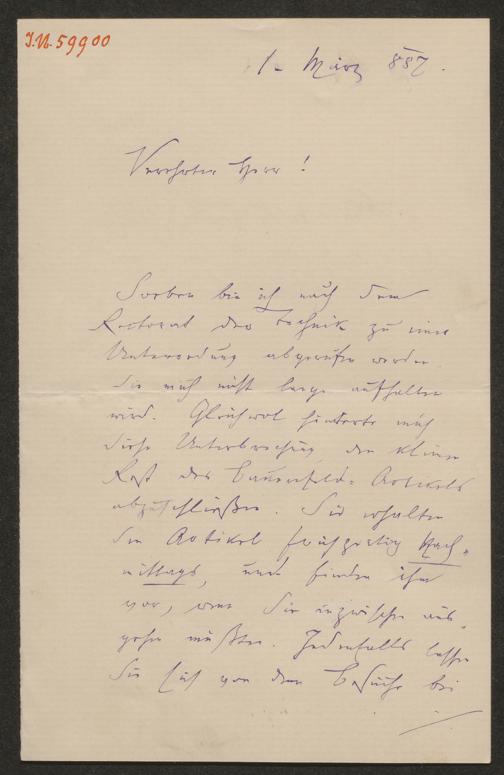 I.N. 59900
1. März 887.
Verehrter Herr!
Soeben bin ich nach dem
Rectorat der Technik zu einer
Unterredung abgerufen worden
die mich nicht lange aufhalten
wird. Gleichwol hinderte mich
diese Unterbrechung den kleinen
Rest des Bauernfeld-Artikels
abzuschließen. Sie erhalten
den Artikel frühzeitig Nach-
mittags, und finden ihn
vor, wenn Sie inzwischen aus-
gehen müßten. Jedenfalls lassen
Sie sich von dem Besuche bei